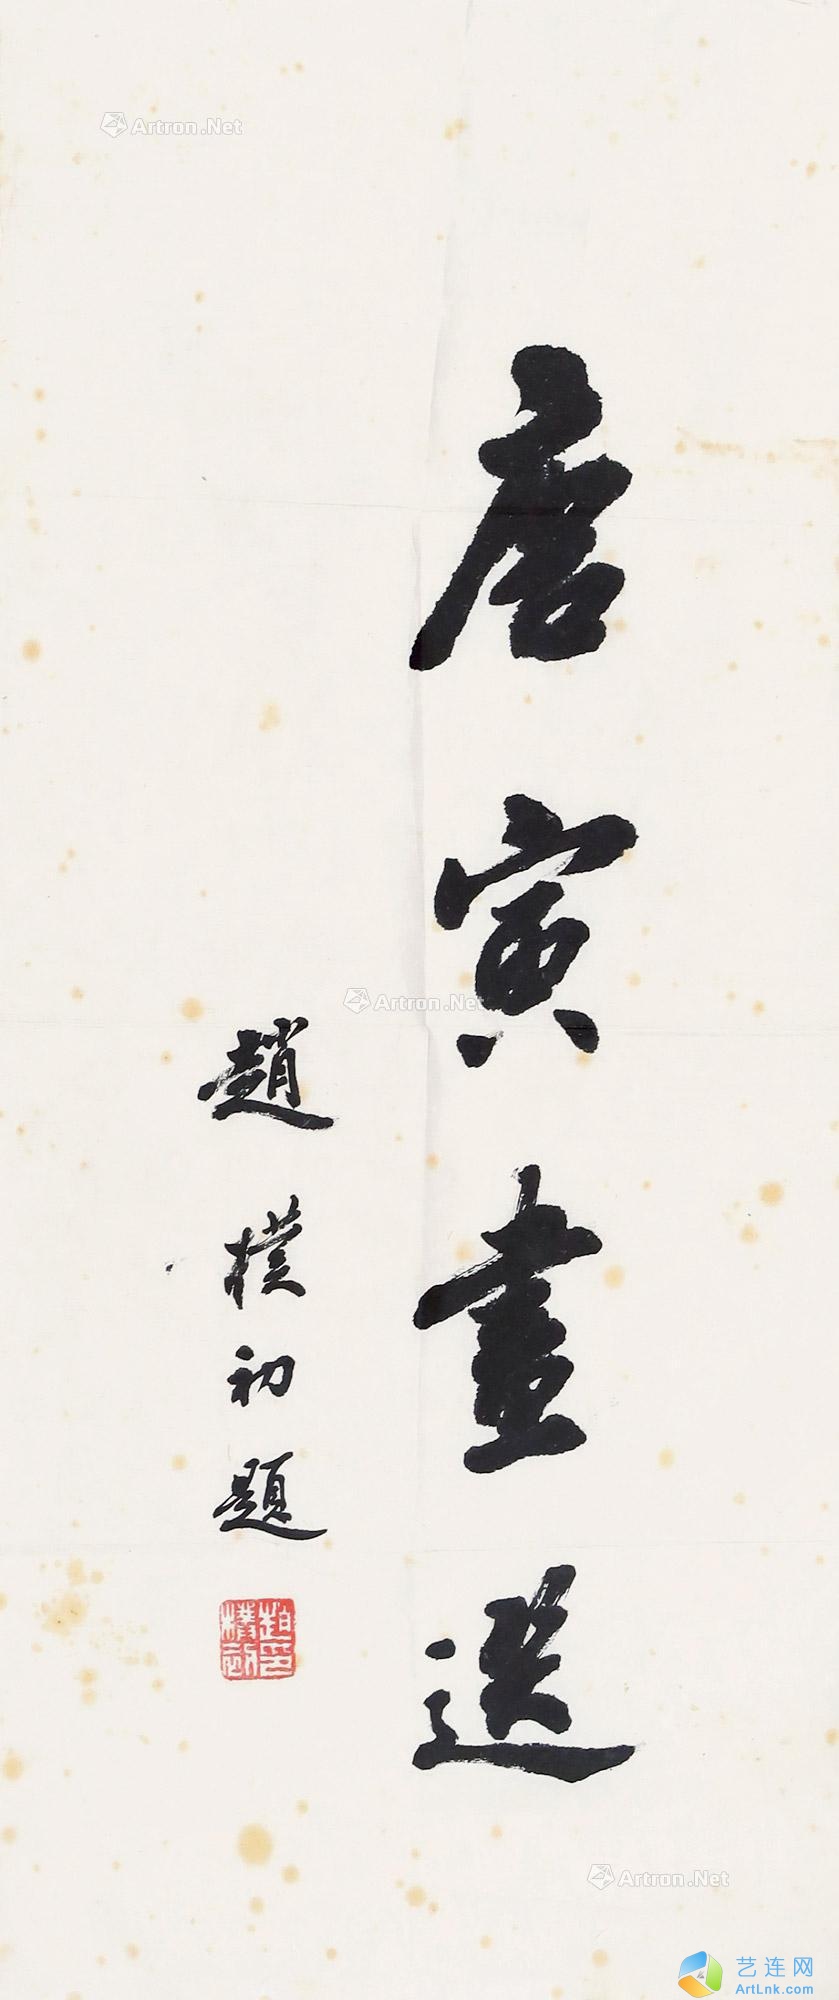 唐寅畫選
趙樸初題
趙樸初印
Artron.Net
Artron.Net
Artron.Net
艺连网
ArtLnk.com